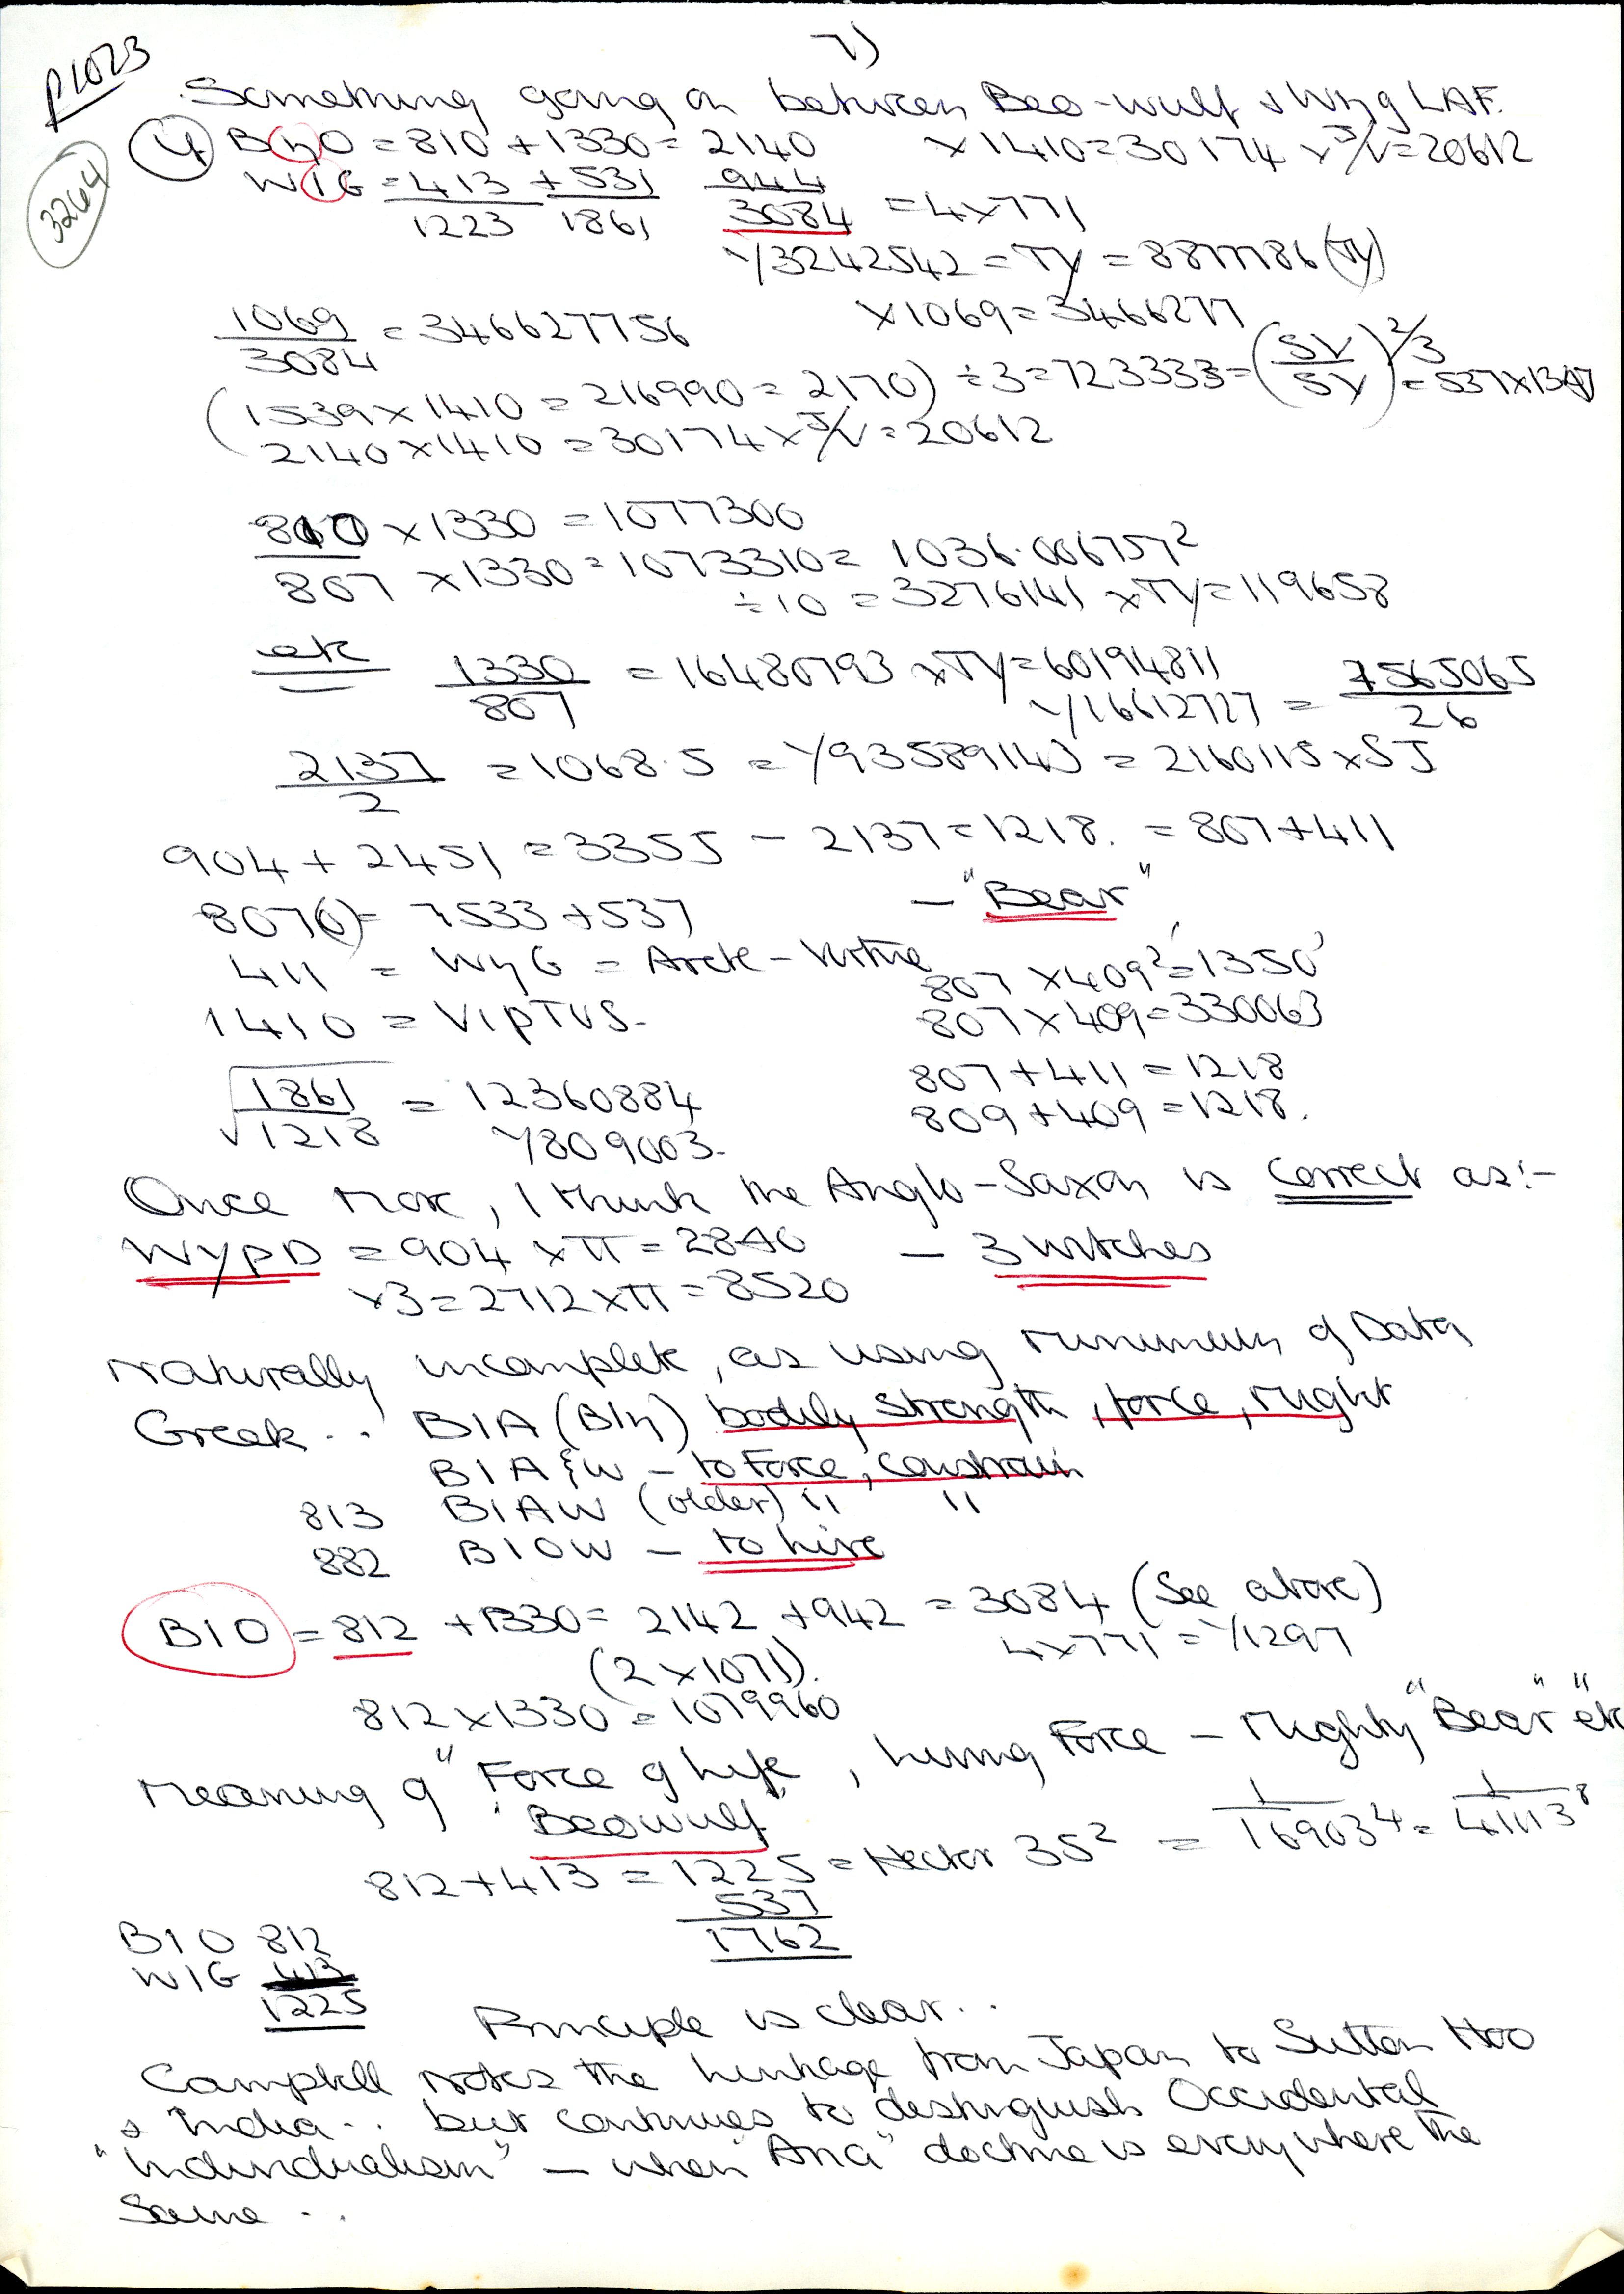 7)
P1023
3264
Something going on between Beo-wulf & WηgLAF.
4 BηO = 810 + 1330 = 2140 x1410=30174 x J/V=20612
WIG = 413 + 531 944
1223 1861 3084 = 4x771
√3242542 = TY = 8877786 (TY)
1069/3084 = 346627756 x1069=3466277
(1539x1410 = 216990 = 2170) ÷3=723333=(SV/SY)^2/3 = 537x1347
2140x1410 = 30174x J/V = 20612
810 x1330 = 1077300
807 x1330 = 1073310 = 1036.006757²
÷10 = 3276141 xTY=119658
etc 1330/807 = 16480793 xTY=60194811
√16612727 = 7565065/26
2137/2 = 1068.5 = √93589143 = 2160115 x SJ
904 + 2451 = 3355 - 2137 = 1218. = 807+411
807(0)= 7533 +537 - "Bear"
411 = WηG = Arete - Virtue 807 x409²=1350'
1410 = VIPTUS. 807x409=330063
√1861/1218 = 12360884 807+411 = 1218
√809003. 809+409=1218.
Once more, I think the Anglo-Saxon is correct as:-
WYPD = 904 xπ = 2840 - 3 witches
x3=2712xπ=8520
Naturally incomplete, as using minimum of Data
Greek.. BIA (BIη) bodily strength, force, might
BIAζW - to Force, constrain
813 BIAW (older) " "
882 BIOW - to live
BIO = 812 + 1330= 2142 +942 = 3084 (See above)
(2x1071). 4x771 = √1297
812x1330 = 1079960
Meaning of "Force of Life, living Force - Mighty "Bear" " etc
"Beowulf"
812+413 = 1225 = Hector 35² = 1/16903⁴ = 1/41113⁸
537
1762
BIO 812
WIG 413
1225
Principle is clear..
Campbell notes the linkage from Japan to Sutton Hoo
& India.. but continues to distinguish Occidental
"Individualism" - when "Ana" doctrine is everywhere the
same ..